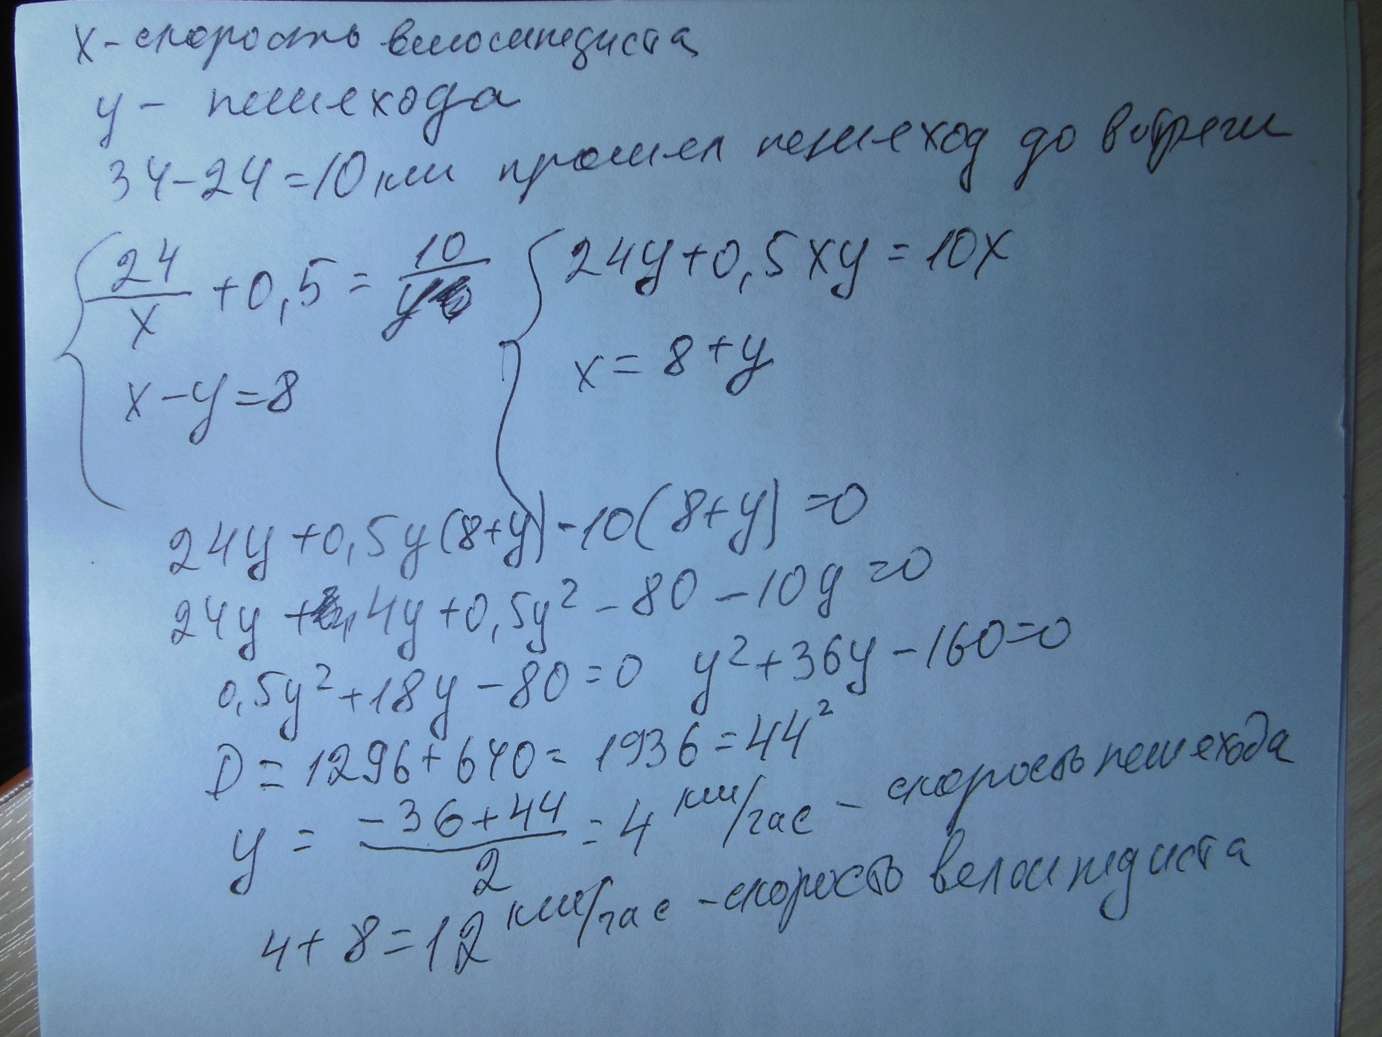 x - скорость велосипедиста
y - пешехода
34-24=10км прошел пешеход до встречи
24/x + 0,5 = 10/y
24y+0,5xy=10x
x-y=8
x=8+y
24y+0,5y(8+y)-10(8+y)=0
24y+4y+0,5y²-80-10y=0
0,5y²+18y-80=0 y²+36y-160=0
D=1296+640=1936=44²
y=(-36+44)/2=4 км/час - скорость пешехода
4+8=12 км/час - скорость велосипедиста